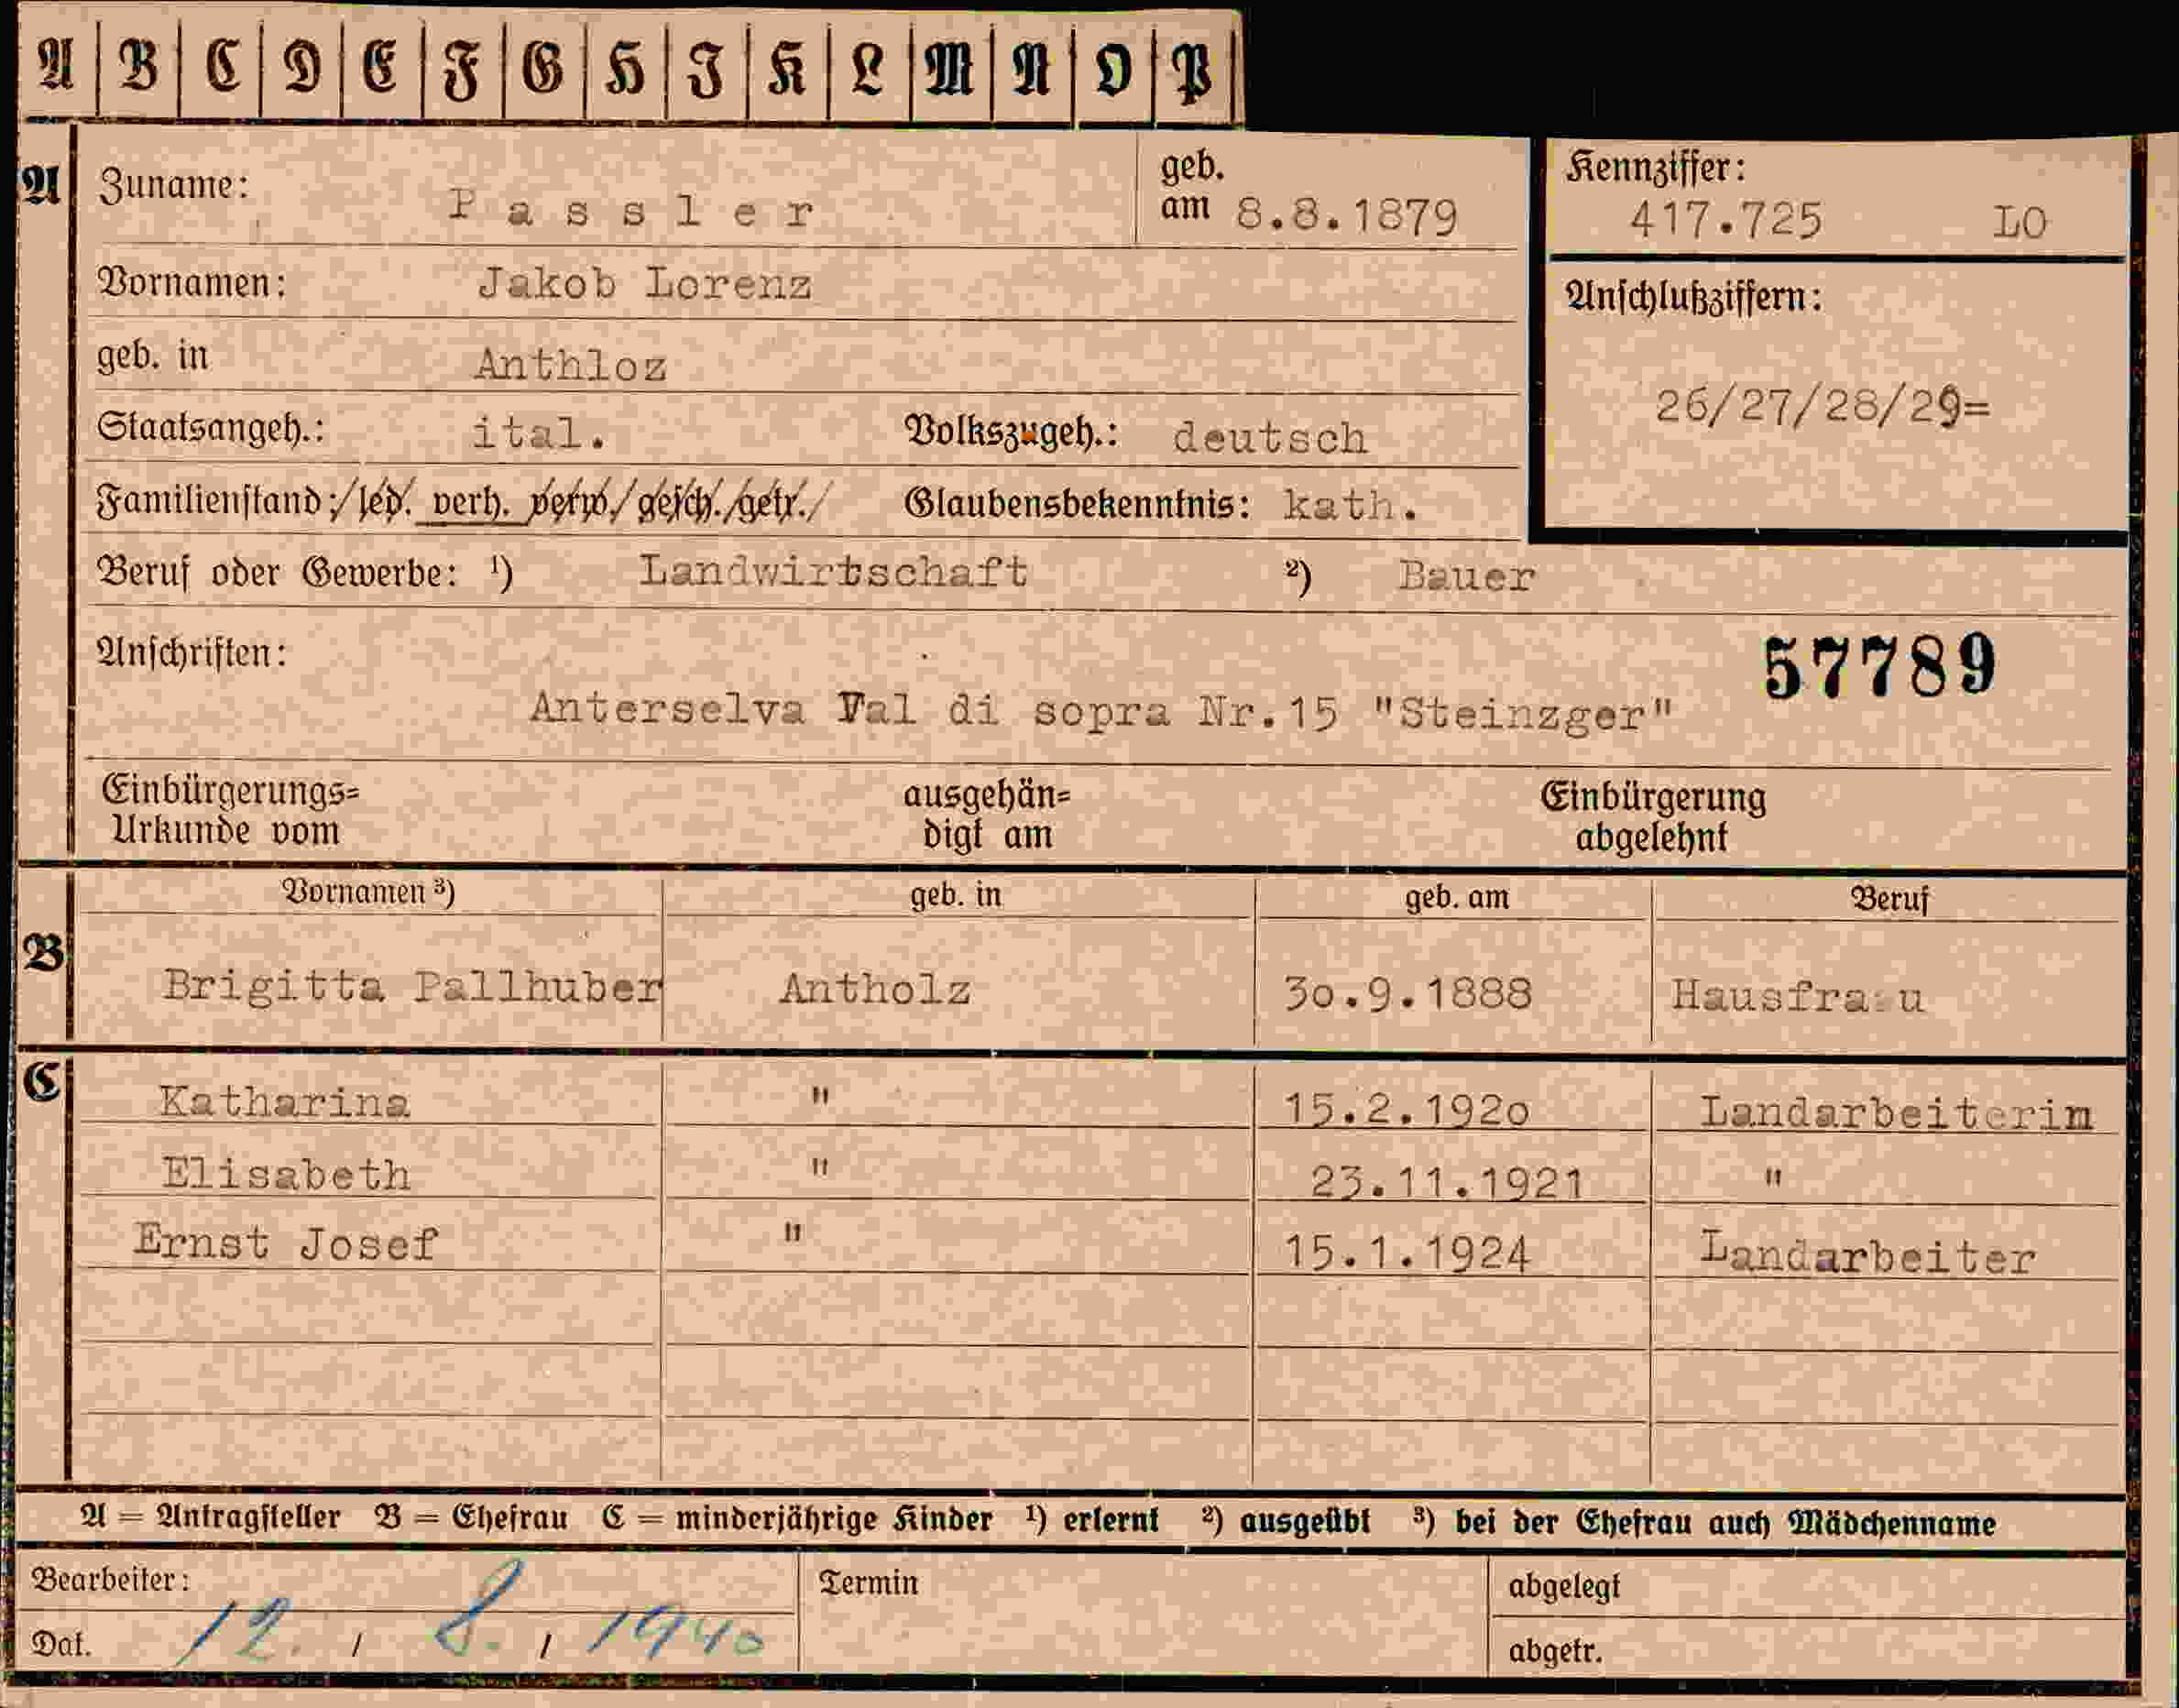 A B C D E F G H I K L M N O P
A Zuname: Passler geb. am 8.8.1879
Kennziffer: 417.725 LO
Vornamen: Jakob Lorenz
Anschlußziffern: 26/27/28/29=
geb. in Anthloz
Staatsangeh.: ital. Volkszugeh.: deutsch
Familienstand: / led. verh. verw. / gesch. / getr. / Glaubensbekenntnis: kath.
Beruf oder Gewerbe: ¹) Landwirtschaft ²) Bauer
Anschriften: 57789
Anterselva Val di sopra Nr.15 "Steinzger"
Einbürgerungs= ausgehän= Einbürgerung
Urkunde vom digt am abgelehnt
Vornamen ³) geb. in geb. am Beruf
B Brigitta Pallhuber Antholz 30.9.1888 Hausfra u
C Katharina " 15.2.1920 Landarbeiterin
Elisabeth " 23.11.1921 "
Ernst Josef " 15.1.1924 Landarbeiter
A = Antragsteller B = Ehefrau C = minderjährige Kinder ¹) erlernt ²) ausgeübt ³) bei der Ehefrau auch Mädchenname
Bearbeiter: Termin abgelegt
Dat. 12. / 8. / 1940 abgetr.